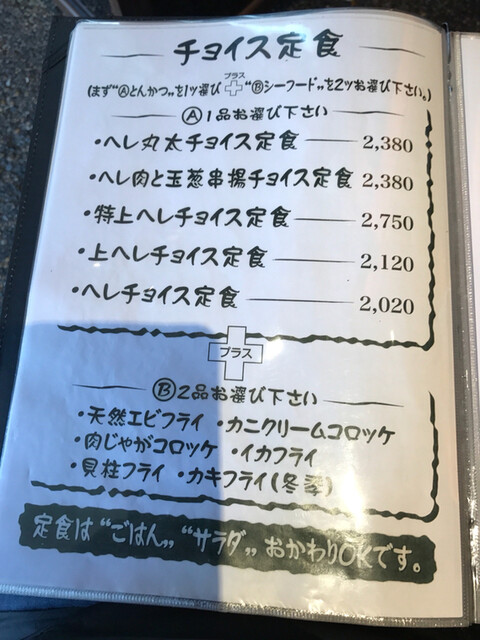 チョイス定食
(まず"Ⓐとんかつ"を1ツ選び プラス "Ⓑシーフード"を2ツお選び下さい。)
Ⓐ1品お選び下さい
・ヘレ丸太チョイス定食 2,380
・ヘレ肉と玉葱串揚チョイス定食 2,380
・特上ヘレチョイス定食 2,750
・上ヘレチョイス定食 2,120
・ヘレチョイス定食 2,020
プラス
Ⓑ2品お選び下さい
・天然エビフライ ・カニクリームコロッケ
・肉じゃがコロッケ ・イカフライ
・貝柱フライ ・カキフライ(冬季)
定食は"ごはん" "サラダ" おかわりOKです。